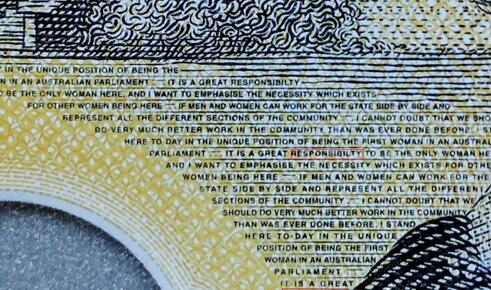 IN THE UNIQUE POSITION OF BEING THE
N IN AN AUSTRALIAN PARLIAMENT ... IT IS A GREAT RESPONSIBILTY
O BE THE ONLY WOMAN HERE, AND I WANT TO EMPHASISE THE NECESSITY WHICH EXISTS
FOR OTHER WOMEN BEING HERE ... IF MEN AND WOMEN CAN WORK FOR THE STATE SIDE BY SIDE AND
REPRESENT ALL THE DIFFERENT SECTIONS OF THE COMMUNITY ... I CANNOT DOUBT THAT WE SHO
DO VERY MUCH BETTER WORK IN THE COMMUNITY THAN WAS EVER DONE BEFORE. I S
HERE TO-DAY IN THE UNIQUE POSITION OF BEING THE FIRST WOMAN IN AN AUSTRA
PARLIAMENT ... IT IS A GREAT RESPONSIBILTY TO BE THE ONLY WOMAN HE
AND I WANT TO EMPHASISE THE NECESSITY WHICH EXISTS FOR OTHE
WOMEN BEING HERE ... IF MEN AND WOMEN CAN WORK FOR THE
STATE SIDE BY SIDE AND REPRESENT ALL THE DIFFERENT
SECTIONS OF THE COMMUNITY ... I CANNOT DOUBT THAT WE
SHOULD DO VERY MUCH BETTER WORK IN THE COMMUNITY
THAN WAS EVER DONE BEFORE. I STAND
HERE TO-DAY IN THE UNIQUE
POSITION OF BEING THE FIRST
WOMAN IN AN AUSTRALIAN
PARLIAMENT ...
IT IS A GREAT